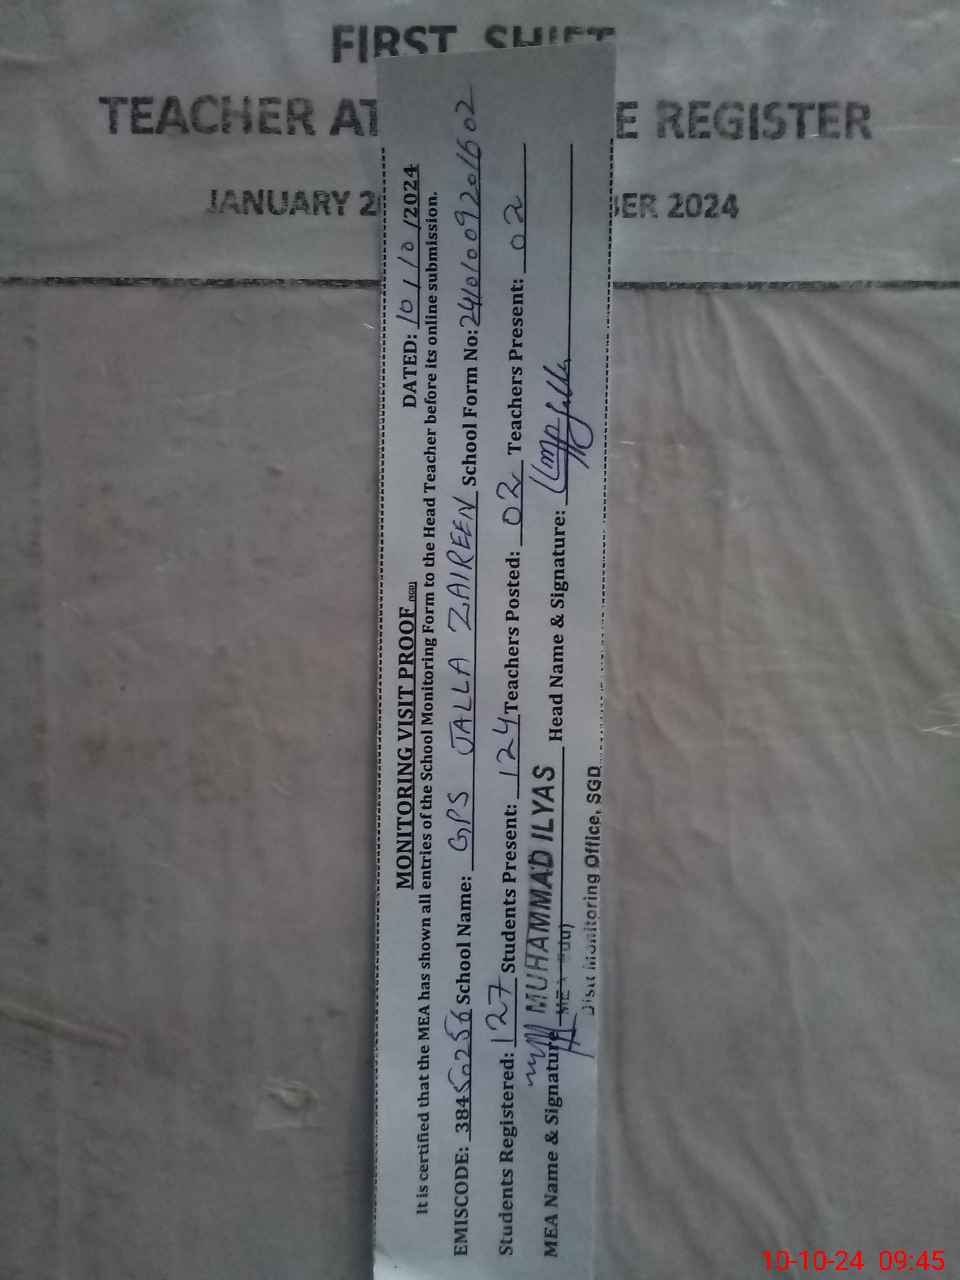 FIRST SHIFT
TEACHER AT E REGISTER
JANUARY 2 BER 2024
MONITORING VISIT PROOF (SGD) DATED: 10/10/2024
It is certified that the MEA has shown all entries of the School Monitoring Form to the Head Teacher before its online submission.
EMISCODE: 38450256 School Name: GPS JALLA ZAIREEN School Form No: 24101009201602
Students Registered: 127 Students Present: 124 Teachers Posted: 02 Teachers Present: 02
MUHAMMAD ILYAS
MEA Name & Signature Head Name & Signature:
Monitoring Office, SGD
10-10-24 09:45